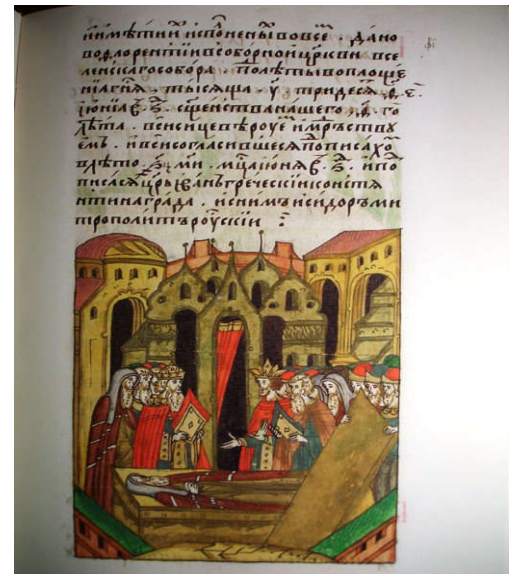 нимѣтнии испоⷧ҇нены вовсеⷨ҇ . дано
вофлорентїи всоборнои цр҃кви все
леньскагособора . полѣты воплоще
нїагн҃ѧ . тысяща . у҃ . тридесѧ . ѳ҃ .
їюнїа ѕ҃ . сщ҃енствѧ нашего . ѳ҃ . го
лѣта . всисице вѣроуеⷨ҇ и мꙋⷣрьствꙋ
емъ . и вси согласившеся пописахоⷨ҇
влѣто . ҂ѕ҃ . ц҃ми . мц҃а їюня ѕ҃ . и по
писася цр҃ь їѡⷩ҇аⷩ҇ъ греческїи констѧ
нтинаграда . иснимъ исидоръ ми
трополитъ роускїи